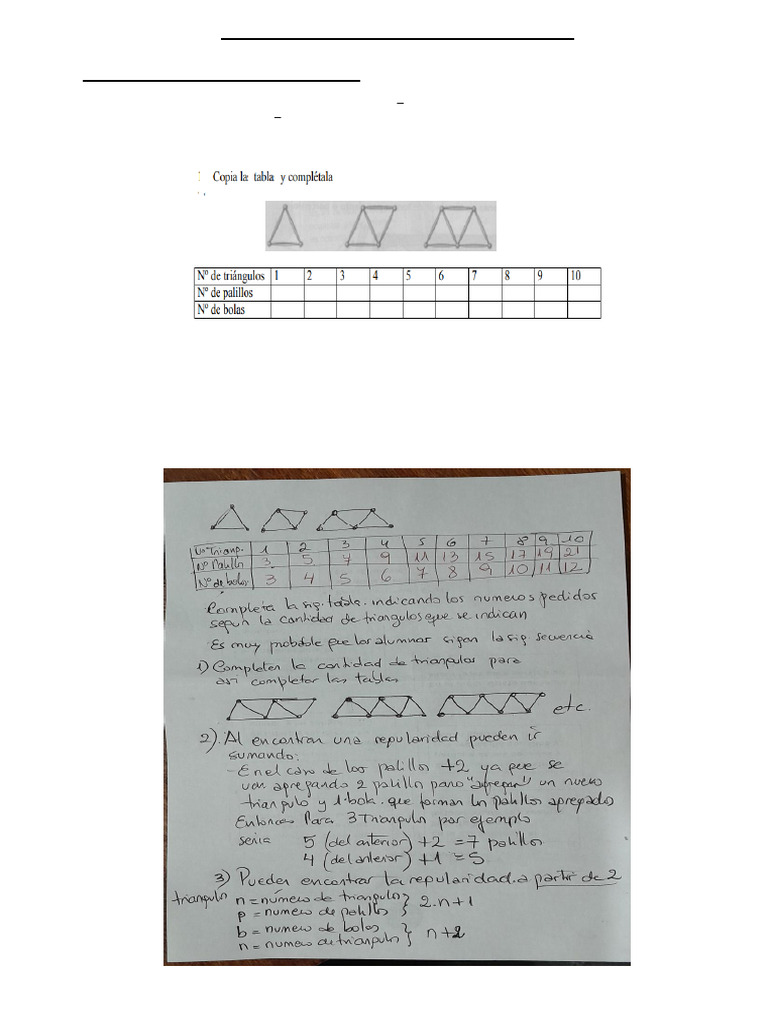 Copia la: tabla: y complétala
Nº de triángulos 1 2 3 4 5 6 7 8 9 10
Nº de palillos
Nº de bolas
Nº Triang. 1 2 3 4 5 6 7 8 9 10
Nº Palillo 3 5 7 9 11 13 15 17 19 21
Nº de bolas 3 4 5 6 7 8 9 10 11 12
Completa la sig. tabla. indicando los numeros pedidos
segun la cantidad de triangulos que se indican
Es muy probable que los alumnos sigan la sig. secuencia
1) Completen la cantidad de triangulos para
asi completar las tablas
etc.
2). Al encontrar una regularidad pueden ir
sumando:
- En el caso de los palillos +2 ya que se
van agregando 2 palillo para "agregar" un nuevo
triangulo y 1 bola. que forman los palillos agregado
Entonces Para 3 Triangulos por ejemplo
seria 5 (del anterior) +2 = 7 palillos
4 (del anterior) +1 = 5
3) Pueden encontrar la regularidad. a partir de 2
triangulo n = número de triangulos } 2.n+1
p = numero de palillos
b = numero de bolos } n+2
n = numero de triangulo